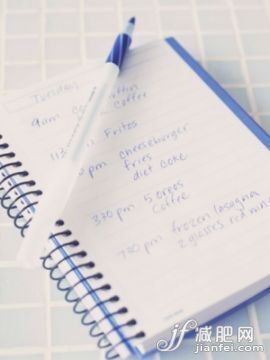 Tuesday
9am Co ffin
Coffee
113 Fritos
pm cheeseburger
fries
diet coke
330 pm 5 oreos
Coffee
730 pm frozen lasagna
2 glasses red wine
减肥网
jianfei.net